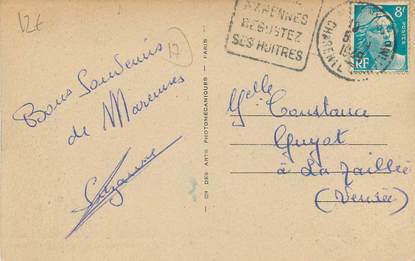 12€
17
MARENNES
DÉGUSTEZ
SES HUITRES
8F
POSTES
RF
Bons Souvenirs
de Marennes
Suzanne
CIE DES ARTS PHOTOMÉCANIQUES — PARIS
Melle Constance
Guyot
à La Taillée
(Vendée)